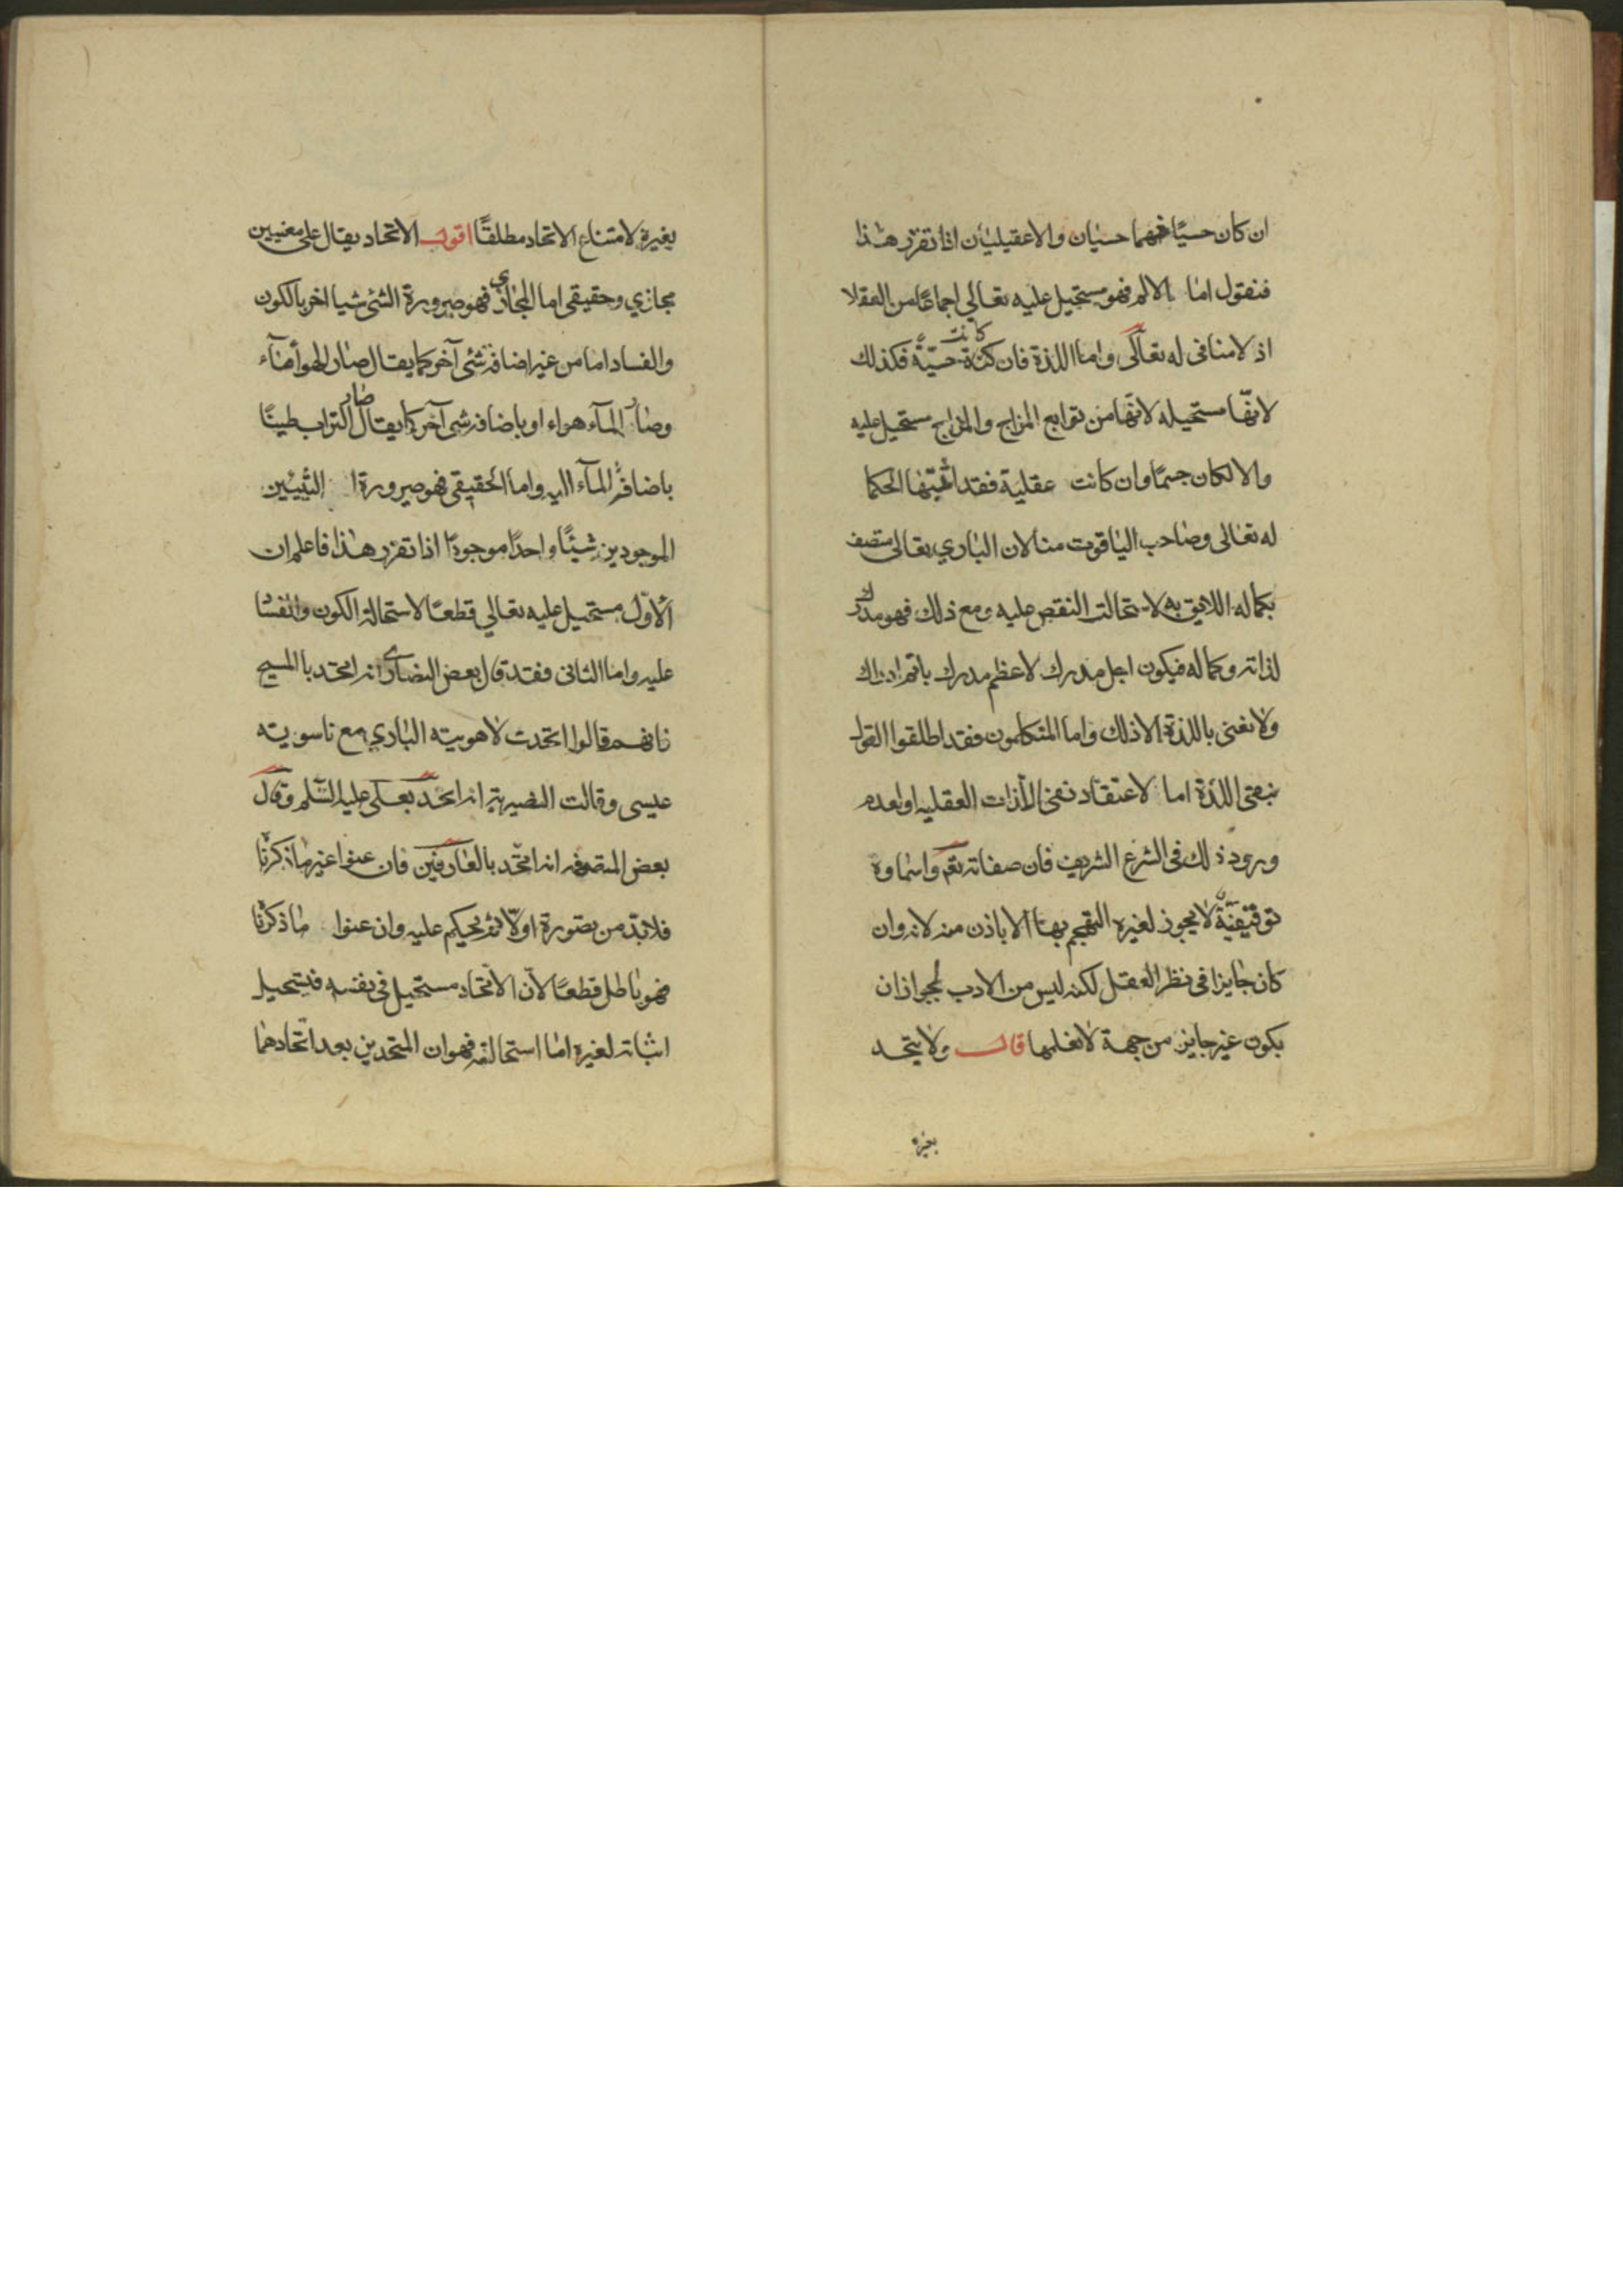 ان كان حسيًا فهما حسيان والا عقيليان اذا تقرر هذا
فنقول اما الالم فهو مستحيل عليه تعالي اجماعًا من العقلا
اذ لا منافى له تعالى واما اللذة فان كانت حسيّة فكذلك
لانّها مستحيله لانّها من توابع المزاج والمزاج مستحيل عليه
والا لكان جسمًا وان كانت عقلية فقد اثبتها الحكما
له تعالى وصاحب الياقوت منا لان الباري تعالى متصف
بكماله اللايق به لاستحالت النقص عليه ومع ذلك فهو مدرك
لذاته وكماله فيكون اجل مدرك لاعظم مدرك باتم ادراك
ولا نعنى باللذة الا ذلك واما المتكلمون فقد اطلقوا القول
بنفى اللذة اما لاعتقاد نفى الذات العقليه او لعدم
ورود ذلك فى الشرع الشريف فان صفاته تعم واسماوه
توقيفيّة لا يجوز لغيره التهجم بها الا باذن منه لانه وان
كان جايزا فى نظر العقل لكنه ليس من الادب لجواز ان
يكون غير جايز من جهة لا نعلمها قال ولا يتحد
بغيره
بغيره لامتناع الاتحاد مطلقًا اقول الاتحاد يقال على معنيين
مجازي وحقيقى اما المجازي فهو صيرورة الشئ شيا اخر بالكون
والفساد اما من غير اضافة شئ آخر كما يقال صار الهوأ مآء
وصار المآء هواء او باضافة شئ آخر كما يقال صار التراب طينًا
باضافة المآء اليه واما الحقيقى فهو صيرورة الشيئين
الموجودين شيئًا واحدًا موجودًا اذا تقرر هذا فاعلم ان
الاوّل مستحيل عليه تعالي قطعًا لاستحالة الكون والفساد
عليه واما الثانى فقد قال بعض النصارى انه اتحد با المسيح
فانهم قالوا اتحدت لاهويته الباري مع ناسويته
عيسى وقالت النصيرية انه اتحد بعلى عليه السّلم وقال
بعض المتصوفه انه اتحّد بالعارفين فان عنوا غير ما ذكرنا
فلابدّ من تصورة اولًا ثم يحكم عليه وان عنوا ما ذكرنا
فهو باطل قطعًا لأن الاتحاد مستحيل فى نفسه فيستحيل
اثباته لغيره اما استحالته فهو ان المتحدين بعد اتّحادهما